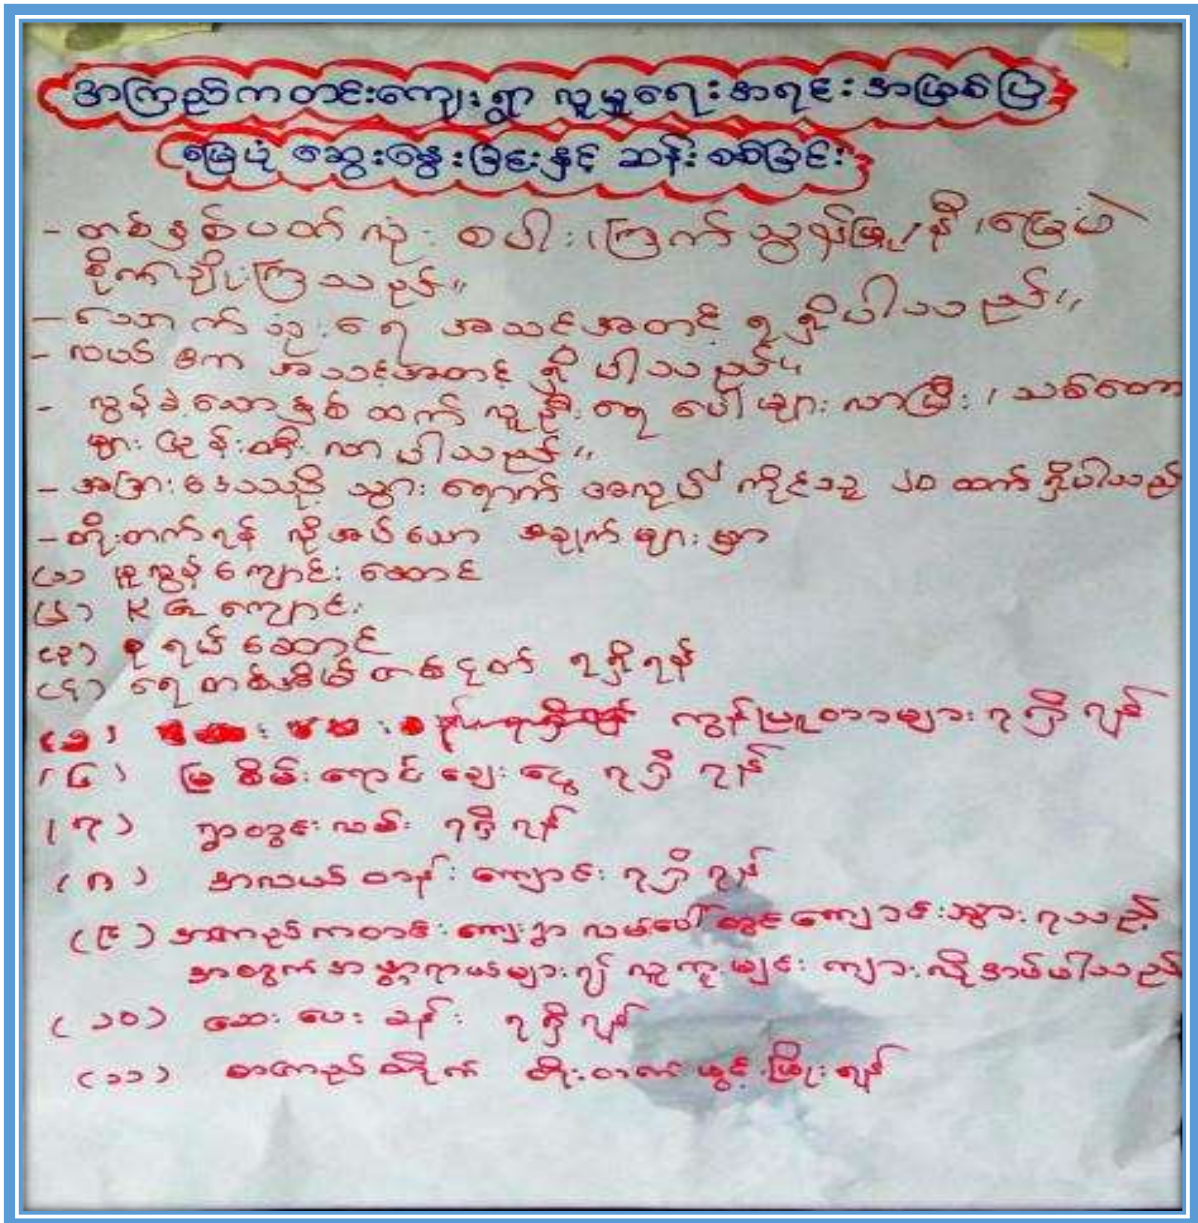 အကြည်ကတင်းကျေးရွာ လူမှုရေးအရင်းအမြစ်ပြ
မြေပုံ ဆွေးနွေးခြင်းနှင့် ဆန်းစစ်ခြင်း
- တစ်နှစ်ပတ်လုံး စပါး၊ ကြက်သွန်ဖြူ၊ နီ၊ မြေပဲ
စိုက်ပျိုးကြသည်။
- သောက်သုံးရေ အသင့်အတင့် ရရှိပါသည်။
- လယ်မြေ အသင့်အတင့် ရှိပါသည်။
- လွန်ခဲ့သောနှစ်ထက် လူဦးရေ ပေါများလာပြီး၊ သစ်တော
များ ပြုန်းတီးလာပါသည်။
- အခြားဒေသသို့ သွားရောက် အလုပ်လုပ်ကိုင်သူ ၂၀ ထက် ရှိပါသည်
- တိုးတက်ရန် လိုအပ်သော အချက်များမှာ
(၁) မူလွန်ကျောင်းဆောင်
(၂) KG ကျောင်း
(၃) စုရပ်ဆောင်
(၄) ရေတစ်အိမ်တစ်ငုတ် ရရှိရန်
(၅) ကွန်ပြူတာများ ရရှိရန်
(၆) မြစိမ်းရောင်ချေးငွေ ရရှိရန်
(၇) ရွာတွင်းလမ်း ရရှိရန်
(၈) အလယ်တန်းကျောင်း ရရှိရန်
(၉) အကြည်ကတင်းကျေးရွာ လမ်းပေါ်တွင် ကျောင်းသွားရသည့်
အတွက် အန္တာရာယ်များ၍ လူကူးမျဉ်းကျား လိုအပ်ပါသည်
(၁၀) ဆေးပေးခန်း ရရှိရန်
(၁၁) စာကြည့်တိုက် တိုးတက်ဖွင့်ဖြိုးရန်